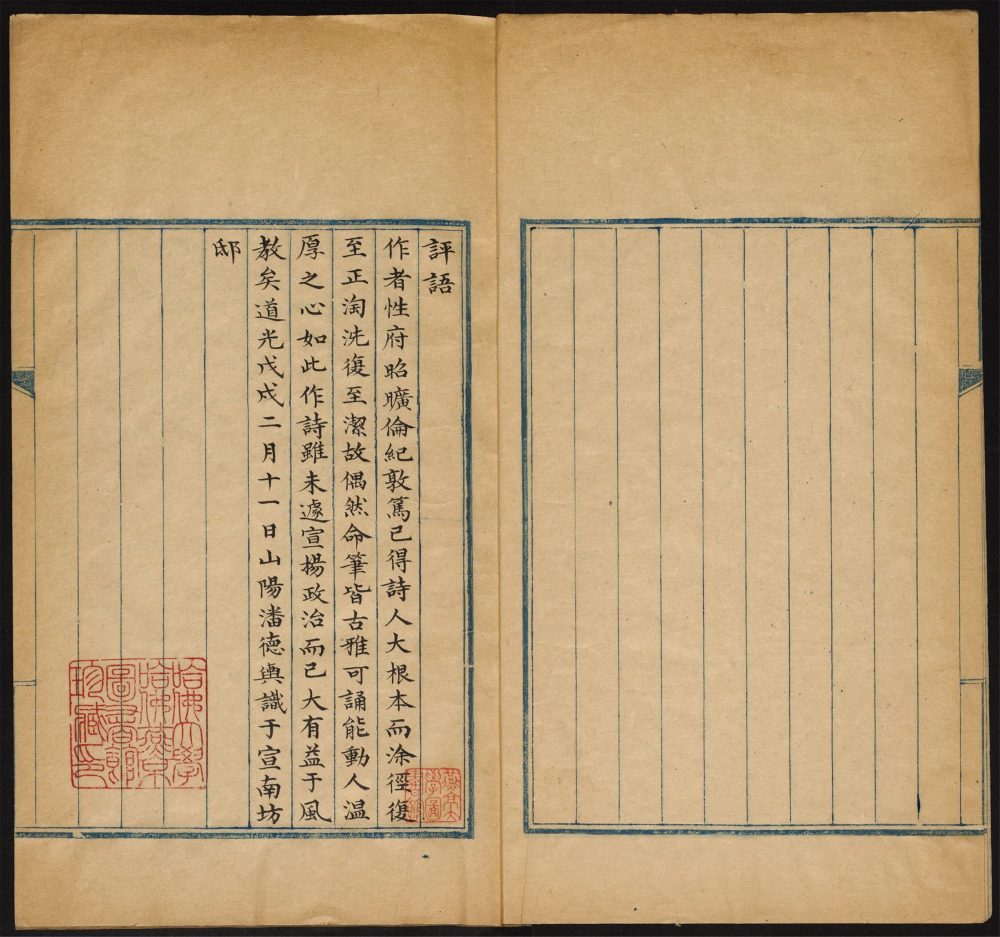 評語
作者性府昭曠倫紀敦篤已得詩人大根本而涂徑復
至正淘洗復至潔故偶然命筆皆古雅可誦能動人温
厚之心如此作詩雖未遽宣楊政治而已大有益于風
教矣道光戊戌二月十一日山陽潘德輿識于宣南坊
邸
燕京大
學圖
書館
哈佛大學
哈佛燕京
圖書館
珍藏印